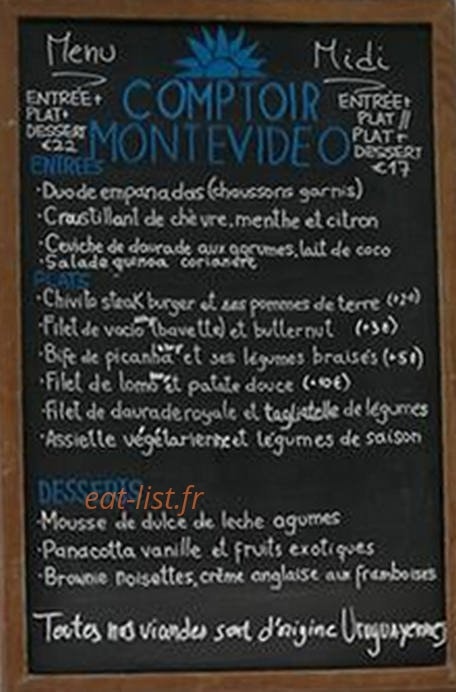 Menu Midi
COMPTOIR
MONTEVIDEO
ENTRÉE+
PLAT+
DESSERT
€22
ENTRÉE+
PLAT //
PLAT+
DESSERT
€17
ENTRÉES
·Duo de empanadas (chaussons garnis)
·Croustillant de chèvre, menthe et citron
·Ceviche de daurade aux agrumes, lait de coco
·Salade quinoa coriandre
PLATS
·Chivito steak burger et ses pommes de terre (+2€)
·Filet de vacio (bavette) et butternut (+3€)
·Bife de picanha et ses légumes braisés (+5€)
·Filet de lomo et patate douce (+10€)
·Filet de daurade royale et tagliatelle de légumes
·Assiette végétarienne et légumes de saison
DESSERTS
eat-list.fr
·Mousse de dulce de leche agumes
·Panacotta vanille et fruits exotiques
·Brownie noisettes, crème anglaise aux framboises
Toutes nos viandes sont d'origine Uruguayennes